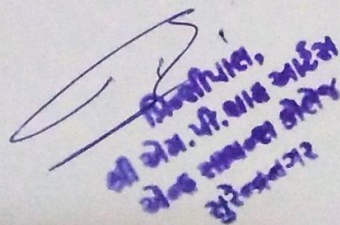 પ્રિન્સીપાલ,
શ્રી એમ. પી. શાહ આર્ટસ
એન્ડ સાયન્સ કોલેજ
સુરેન્દ્રનગર